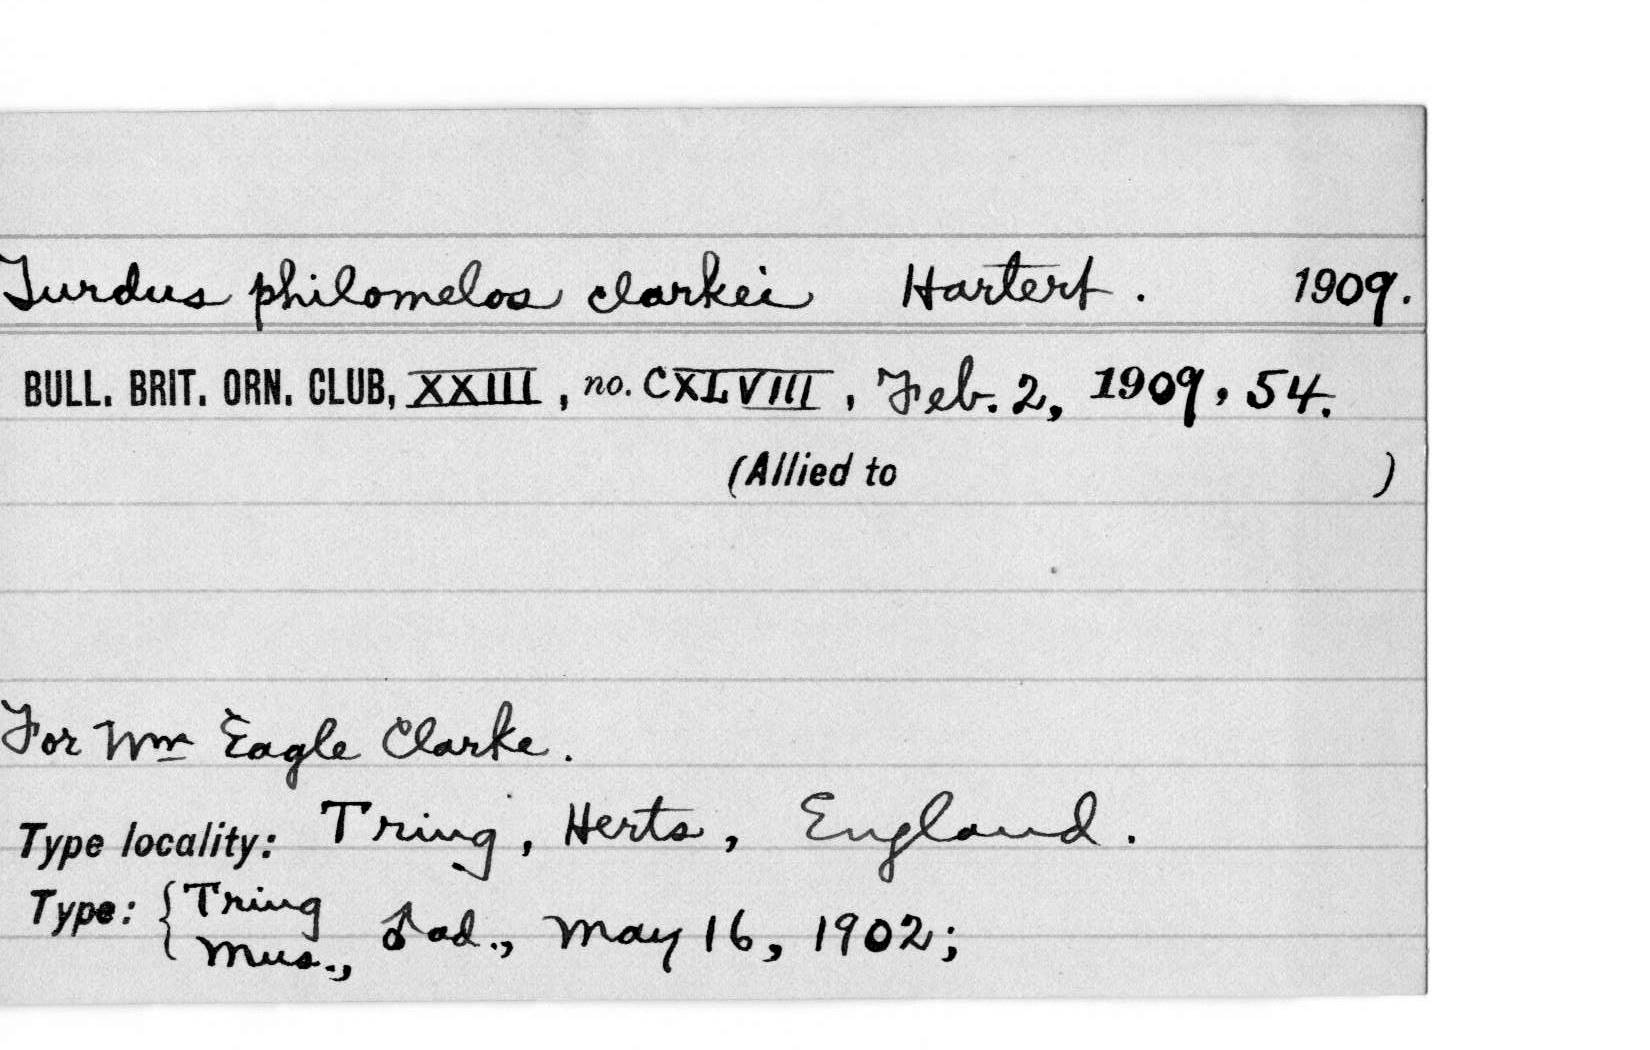 Turdus philomelos clarkei Hartert. 1909.
BULL. BRIT. ORN. CLUB, XXIII, no. CXLVIII, Feb. 2, 1909, 54.
(Allied to )
For Wm Eagle Clarke.
Type locality: Tring, Herts, England.
Type: { Tring Mus., ♂ ad., May 16, 1902;